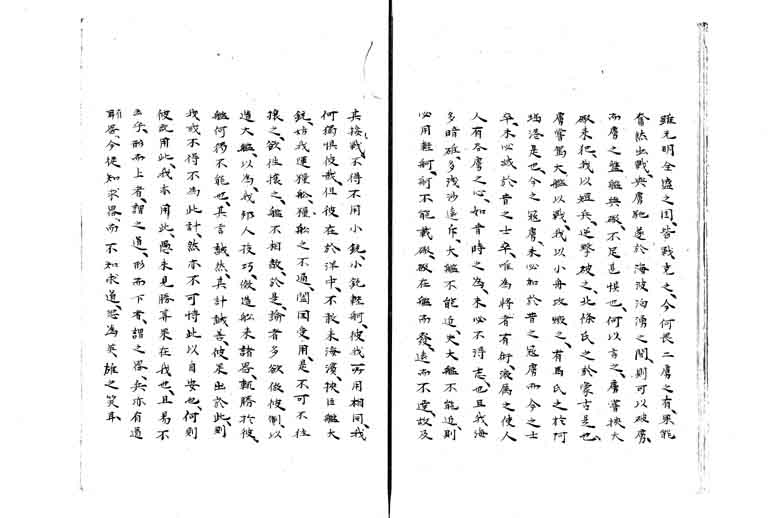 雖元明全盛之國、皆戰克之、今何畏二虜之有、果能
奮然出戰、與虜馳逐於海波洶湧之間、則可以破虜、
而虜之盤艦與礮、不足畏懼也、何以言之、虜嘗挾大
礮来犯、我以短兵、逆擊破之、北條氏之於蒙古是也、
虜嘗駕大艦以戰、我以小舟攻蝦之、有馬氏之於阿
媽港是也、今之寇虜、未必如於昔之寇虜、而今之士
卒、未必減於昔之士卒、唯為將者有術、激厲之、使人
人有吞虜之心、如昔時之為、未必不得志也、且我海
多暗礁、多浅沙遠斥、大艦不能近、夫大艦不能近、則
必用輕舸、舸不能載礮、礮在艦而發、遠而不達、故及
其接戰、不得不用小銃、小銃輕舸、彼我所用相同、我
何獨懼彼哉、但彼在於洋中、不敢来海濱、挾巨艦大
銃、妨我運糧舩、糧舩之不通、闔国受用、是不可不往
攘之、欲往攘之、艦不相敵、於是、論者多欲倣彼制、以
造大艦、以為、我邦人技巧、倣造舩来諸器、輒勝於彼、
艦何獨不能也、其言誠然、其計誠善、彼果出於此、則
我或不得不為此計、然亦不可恃此以自安也、何則
彼既用此、我亦用此、愚未見勝算果在我也、且易不
云乎、形而上者、謂之道、形而下者、謂之器、兵亦有道
有器、今徒知求器、而不知求道、恐為英雄之笑耳、